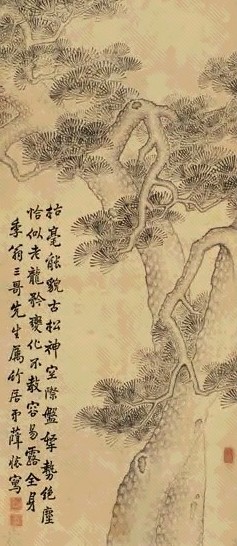 枯毫能貌古松神空際盤拏勢絕塵
恰似老龍矜變化不教容易露全身
季翁三哥先生屬竹居弟薛恮寫